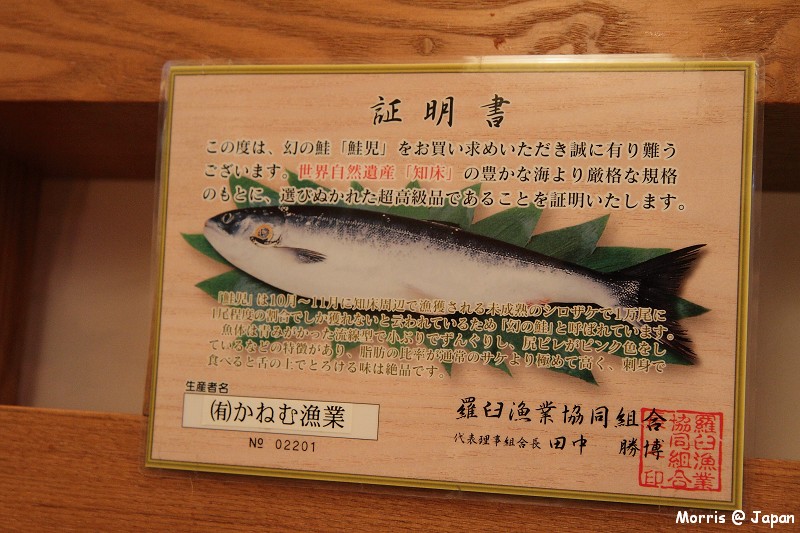 証明書
この度は、幻の鮭「鮭児」をお買い求めいただき誠に有り難う
ございます。世界自然遺産「知床」の豊かな海より厳格な規格
のもとに、選びぬかれた超高級品であることを証明いたします。
「鮭児」は10月～11月に知床周辺で漁獲される未成熟のシロザケで1万尾に
1尾程度の割合でしか獲れないと云われているため「幻の鮭」と呼ばれています。
魚体は青みがかった流線型で小ぶりでずんぐりし、尻ビレがピンク色をし
ているなどの特徴があり、脂肪の比率が通常のサケより極めて高く、刺身で
食べると舌の上でとろける味は絶品です。
生産者名
㈲かねむ漁業
№ 02201
羅臼漁業協同組合
代表理事組合長 田中 勝博
羅臼漁業
協同組合
印
Morris @ Japan